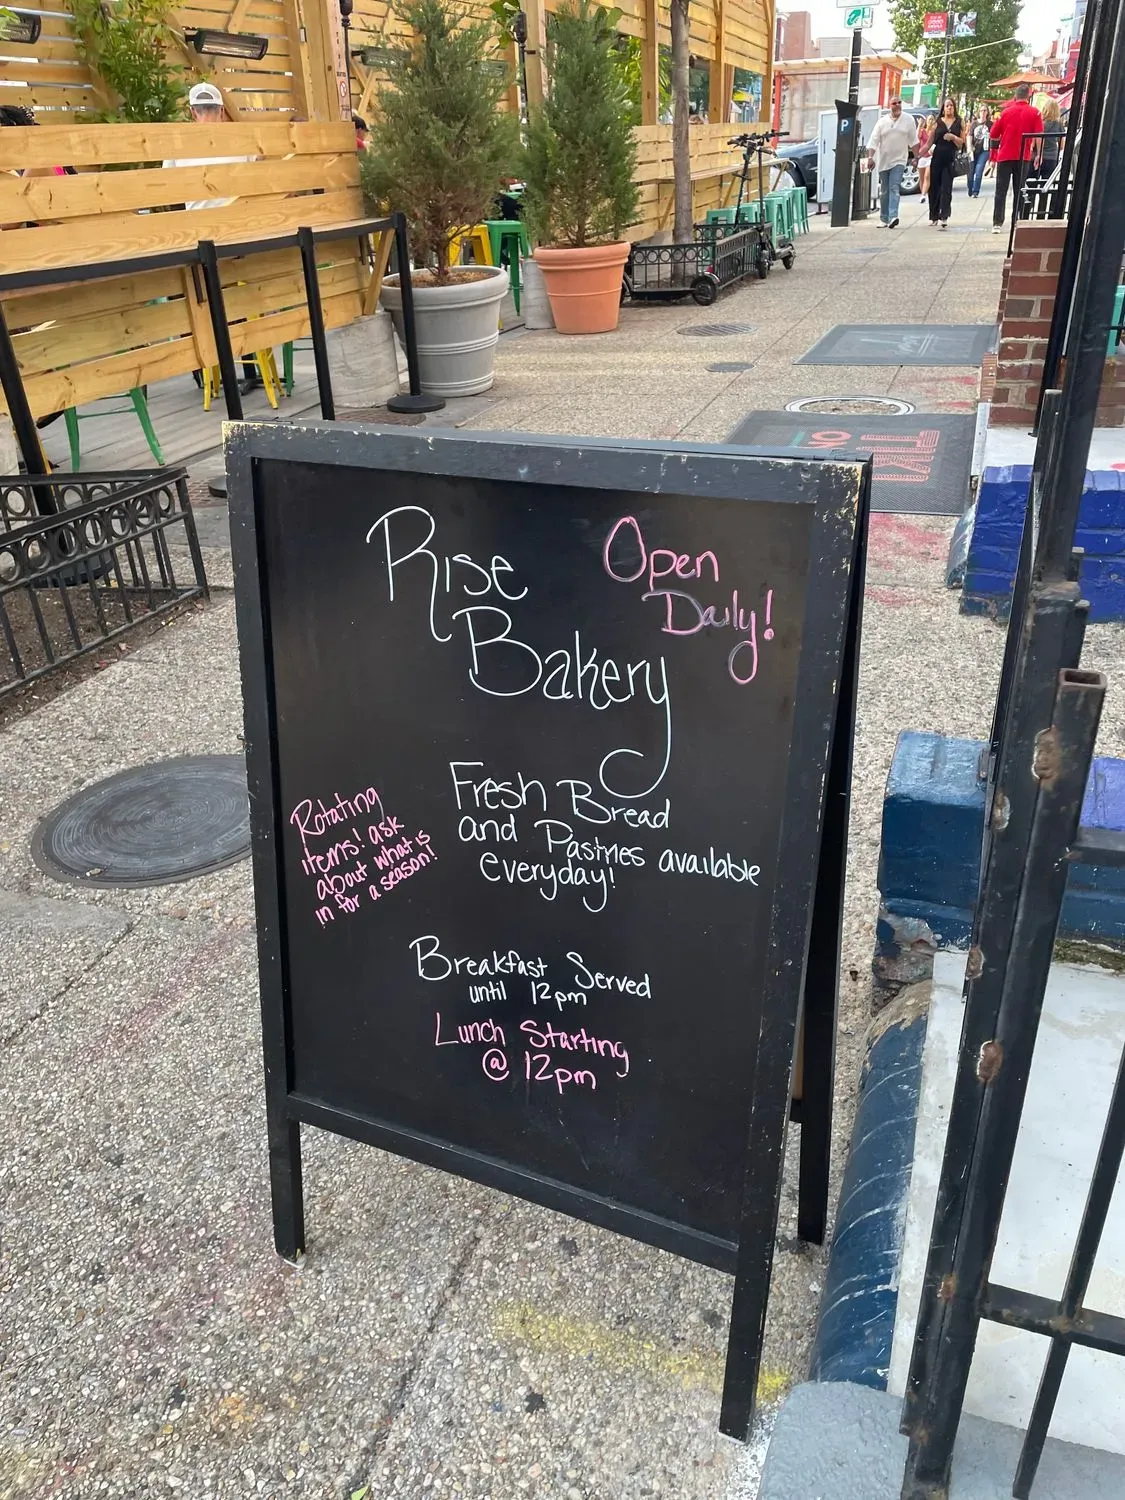 Rise
Bakery
Open
Daily!
Fresh Bread
and Pastries available
everyday!
Rotating
items! ask
about what is
in for a season!
Breakfast Served
until 12pm
Lunch Starting
@ 12pm
P
TIKI
ON